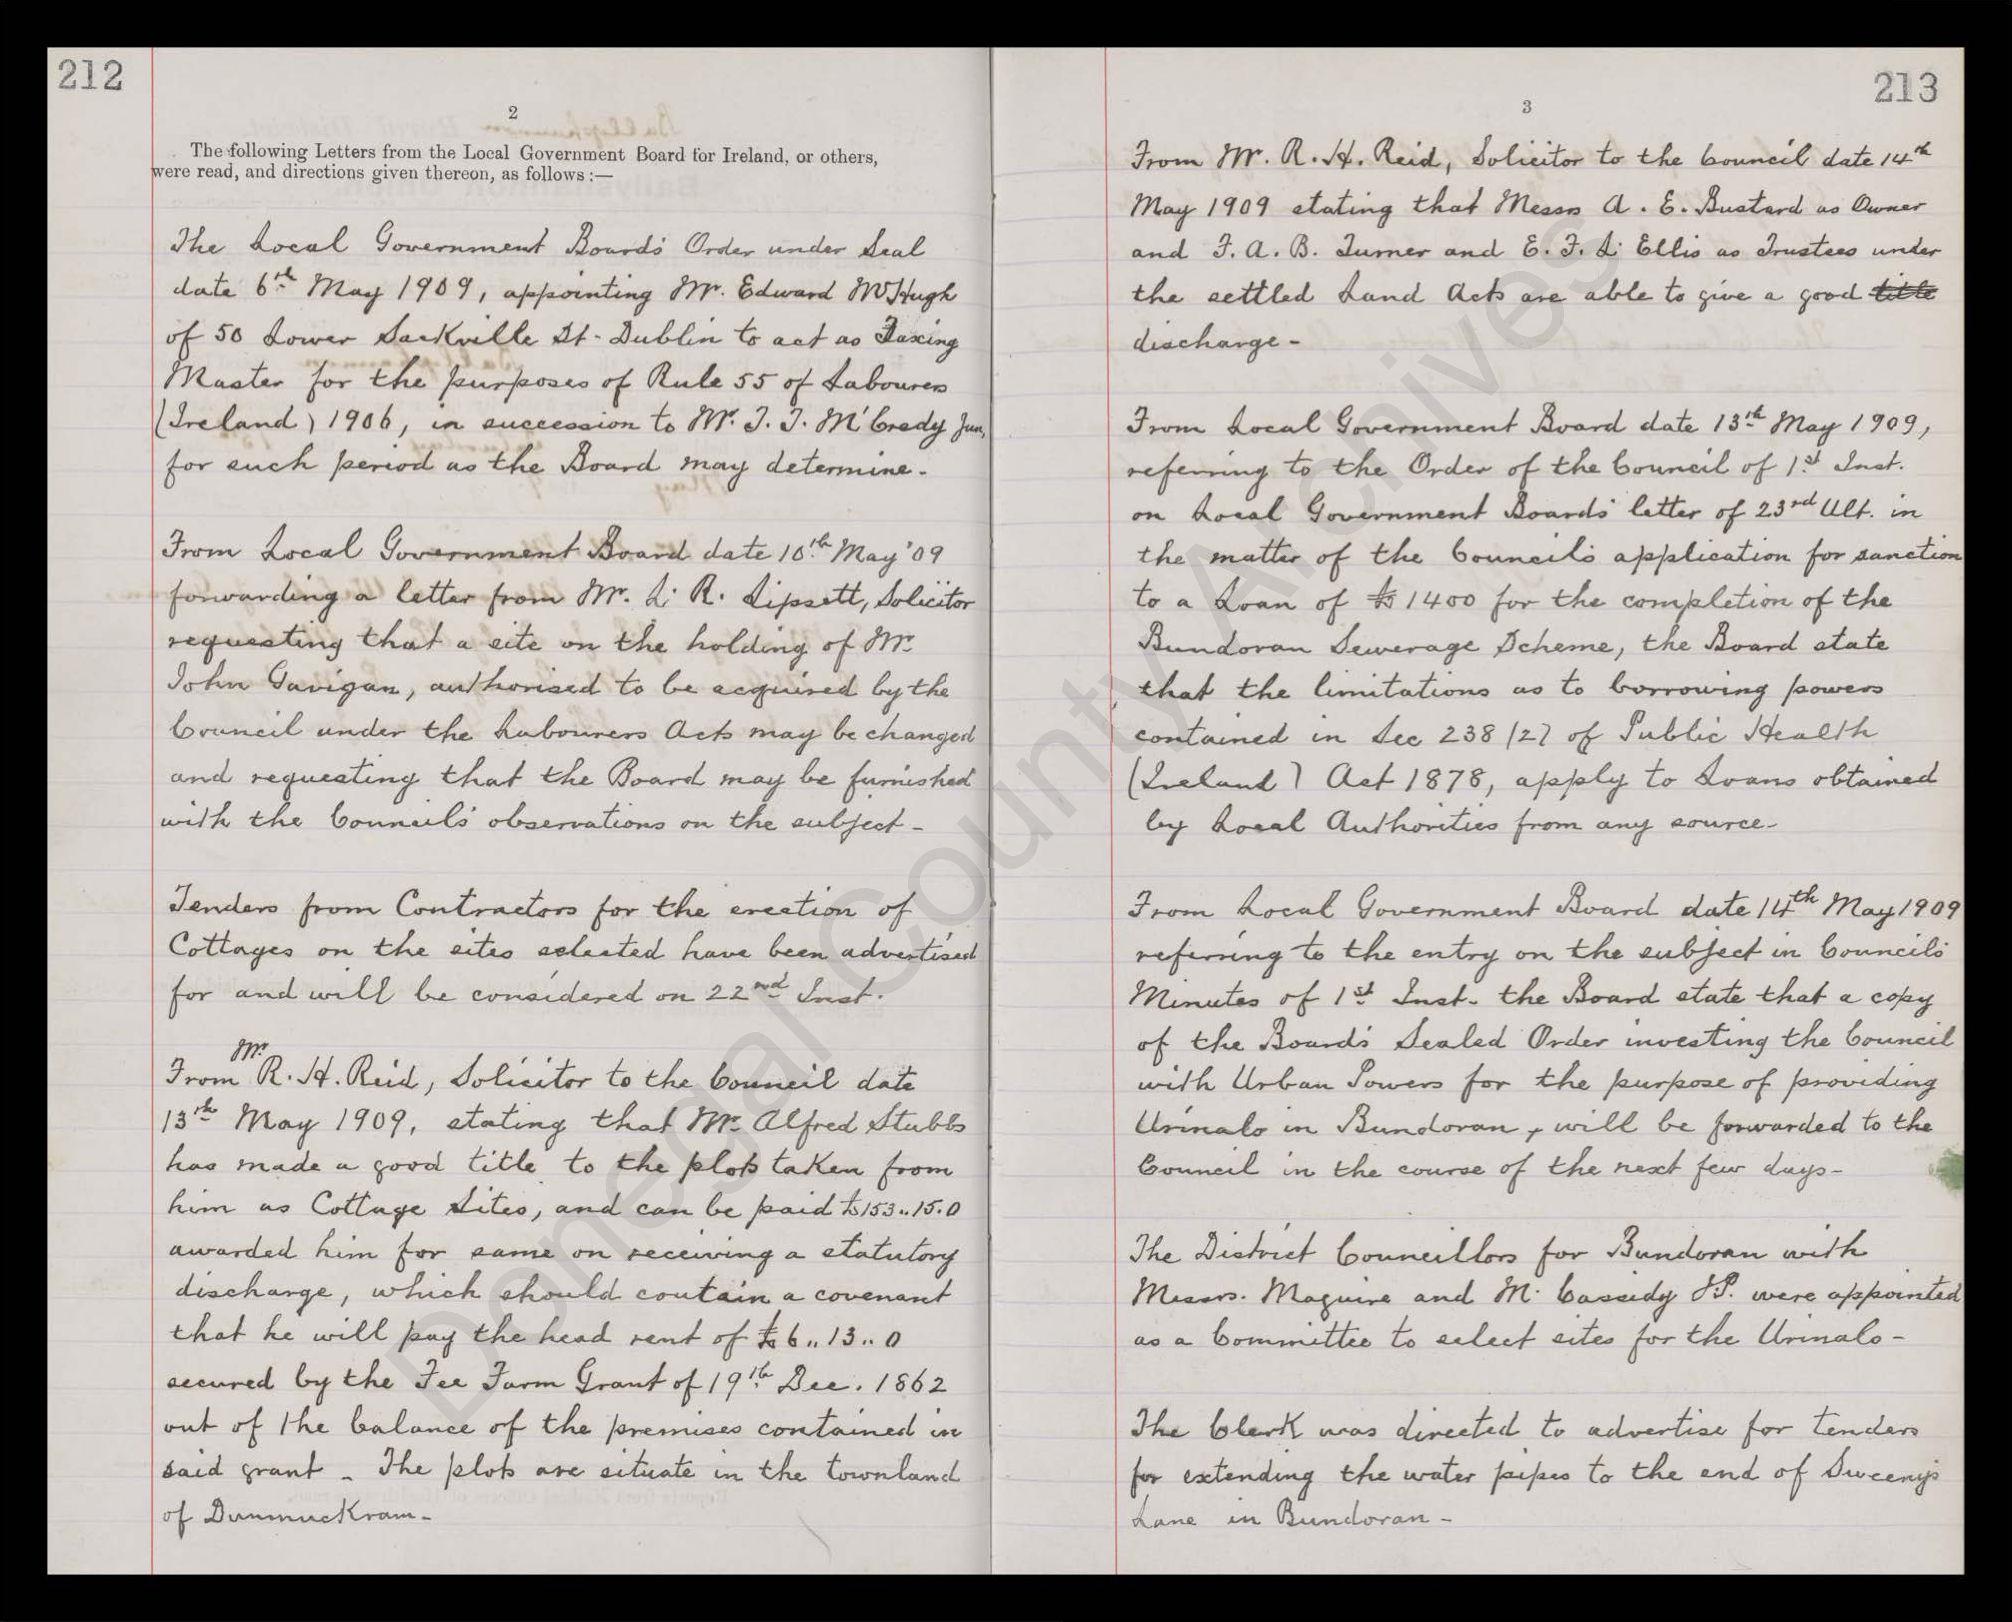 212
2
The following Letters from the Local Government Board for Ireland, or others,
were read, and directions given thereon, as follows :—
The Local Government Board's Order under Seal
date 6th May 1909, appointing Mr. Edward McHugh
of 50 Lower Sackville St. Dublin to act as Taxing
Master for the purposes of Rule 55 of Labourers
(Ireland) 1906, in succession to Mr. T. T. McCredy Jun,
for such period as the Board may determine.
From Local Government Board date 10th May '09
forwarding a letter from Mr. L. R. Lipsett, Solicitor
requesting that a site on the holding of Mr.
John Gavigan, authorised to be acquired by the
Council under the Labourers Acts may be changed
and requesting that the Board may be furnished
with the Council's observations on the subject -
Tenders from Contractors for the erection of
Cottages on the sites selected have been advertised
for and will be considered on 22nd Inst.
From Mr R. H. Reid, Solicitor to the Council date
13th May 1909, stating that Mr. Alfred Stubbs
has made a good title to the plots taken from
him as Cottage Sites, and can be paid £153..15.0
awarded him for same on receiving a statutory
discharge, which should contain a covenant
that he will pay the head rent of £6..13..0
secured by the Fee Farm Grant of 19th Dec. 1862
out of the balance of the premises contained in
said grant - The plots are situate in the townland
of Dunmuckram -
213
3
From Mr. R. H. Reid, Solicitor to the Council date 14th
May 1909 stating that Messrs A. E. Bustard as Owner
and F. A. B. Turner and E. F. L. Ellis as Trustees under
the settled Land Acts are able to give a good title
discharge -
From Local Government Board date 13th May 1909,
referring to the Order of the Council of 1st Inst.
on Local Government Boards' letter of 23rd Ult. in
the matter of the Council's application for sanction
to a Loan of £1400 for the completion of the
Bundoran Sewerage Scheme, the Board state
that the limitations as to borrowing powers
contained in Sec 238 (2) of Public Health
(Ireland) Act 1878, apply to Loans obtained
by Local Authorities from any source -
From Local Government Board date 14th May 1909
referring to the entry on the subject in Council's
Minutes of 1st Inst. the Board state that a copy
of the Board's Sealed Order investing the Council
with Urban Powers for the purpose of providing
Urinals in Bundoran, will be forwarded to the
Council in the course of the next few days -
The District Councillors for Bundoran with
Messrs. Maguire and M. Cassidy J.P. were appointed
as a Committee to select sites for the Urinals -
The Clerk was directed to advertise for tenders
for extending the water pipes to the end of Sweeny's
Lane in Bundoran -
Donegal County Archives